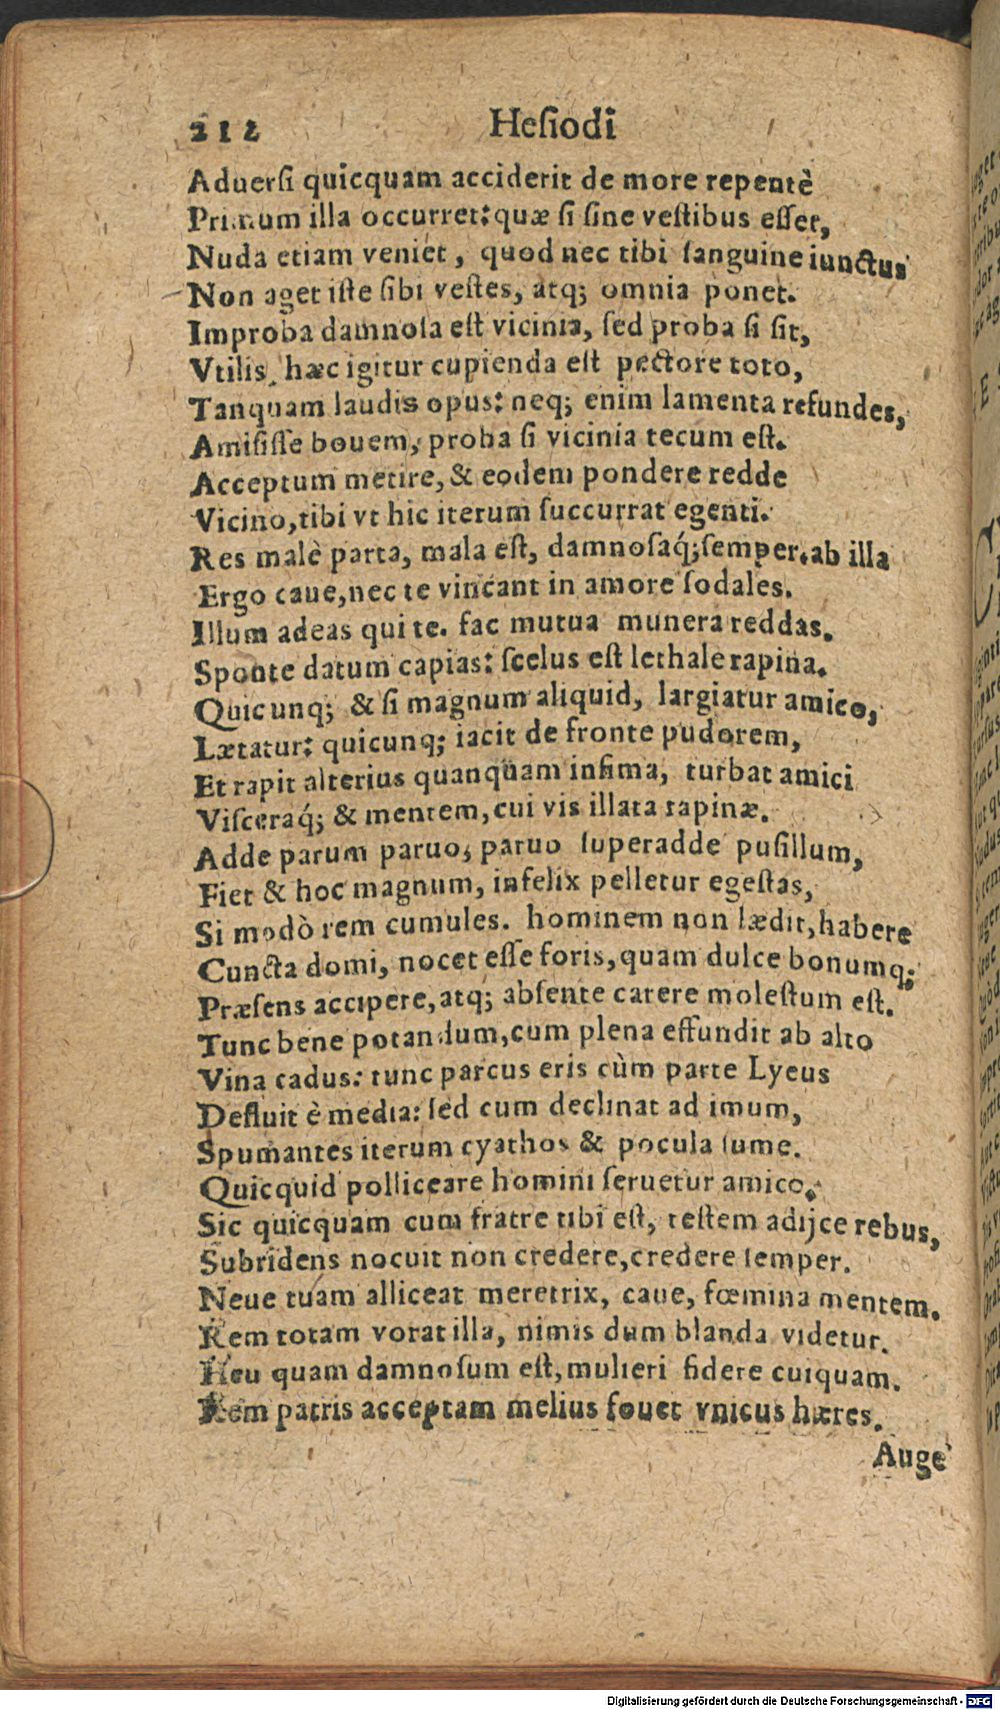 212 Heſiodi
Aduerſi quicquam acciderit de more repentè
Primum illa occurret: quæ ſi ſine veſtibus eſſet,
Nuda etiam veniet, quod nec tibi ſanguine iunctus
Non aget iſte ſibi veſtes, atq; omnia ponet.
Improba damnoſa eſt vicinia, ſed proba ſi ſit,
Vtilis, hæc igitur cupienda eſt pectore toto,
Tanquam laudis opus: neq; enim lamenta refundes,
Amiſiſſe bouem, proba ſi vicinia tecum eſt.
Acceptum metire, & eodem pondere redde
Vicino, tibi vt hic iterum ſuccurrat egenti.
Res malè parta, mala eſt, damnoſaq́; ſemper. ab illa
Ergo caue, nec te vincant in amore ſodales.
Illum adeas qui te. fac mutua munera reddas.
Sponte datum capias: ſcelus eſt lethale rapina.
Quicunq; & ſi magnum aliquid, largiatur amico,
Lætatur: quicunq; iacit de fronte pudorem,
Et rapit alterius quanquam infima, turbat amici
Viſceraq́; & mentem, cui vis illata rapinæ.
Adde parum paruo, paruo ſuperadde puſillum,
Fiet & hoc magnum, infelix pelletur egeſtas,
Si modò rem cumules. hominem non lædit, habere
Cuncta domi, nocet eſſe foris, quam dulce bonumq;
Præſens accipere, atq; abſente carere moleſtum eſt.
Tunc bene potandum, cum plena effundit ab alto
Vina cadus: tunc parcus eris cùm parte Lyeus
Defluit è media: ſed cum declinat ad imum,
Spumantes iterum cyathos & pocula ſume.
Quicquid polliceare homini ſeruetur amico.
Sic quicquam cum fratre tibi eſt, teſtem adijce rebus,
Subridens nocuit non credere, credere ſemper.
Neue tuam alliceat meretrix, caue, fœmina mentem.
Rem totam vorat illa, nimis dum blanda videtur.
Heu quam damnoſum eſt, mulieri fidere cuiquam.
Rem patris acceptam melius fouet vnicus hæres.
Auge
Digitalisierung gefördert durch die Deutsche Forschungsgemeinschaft - DFG